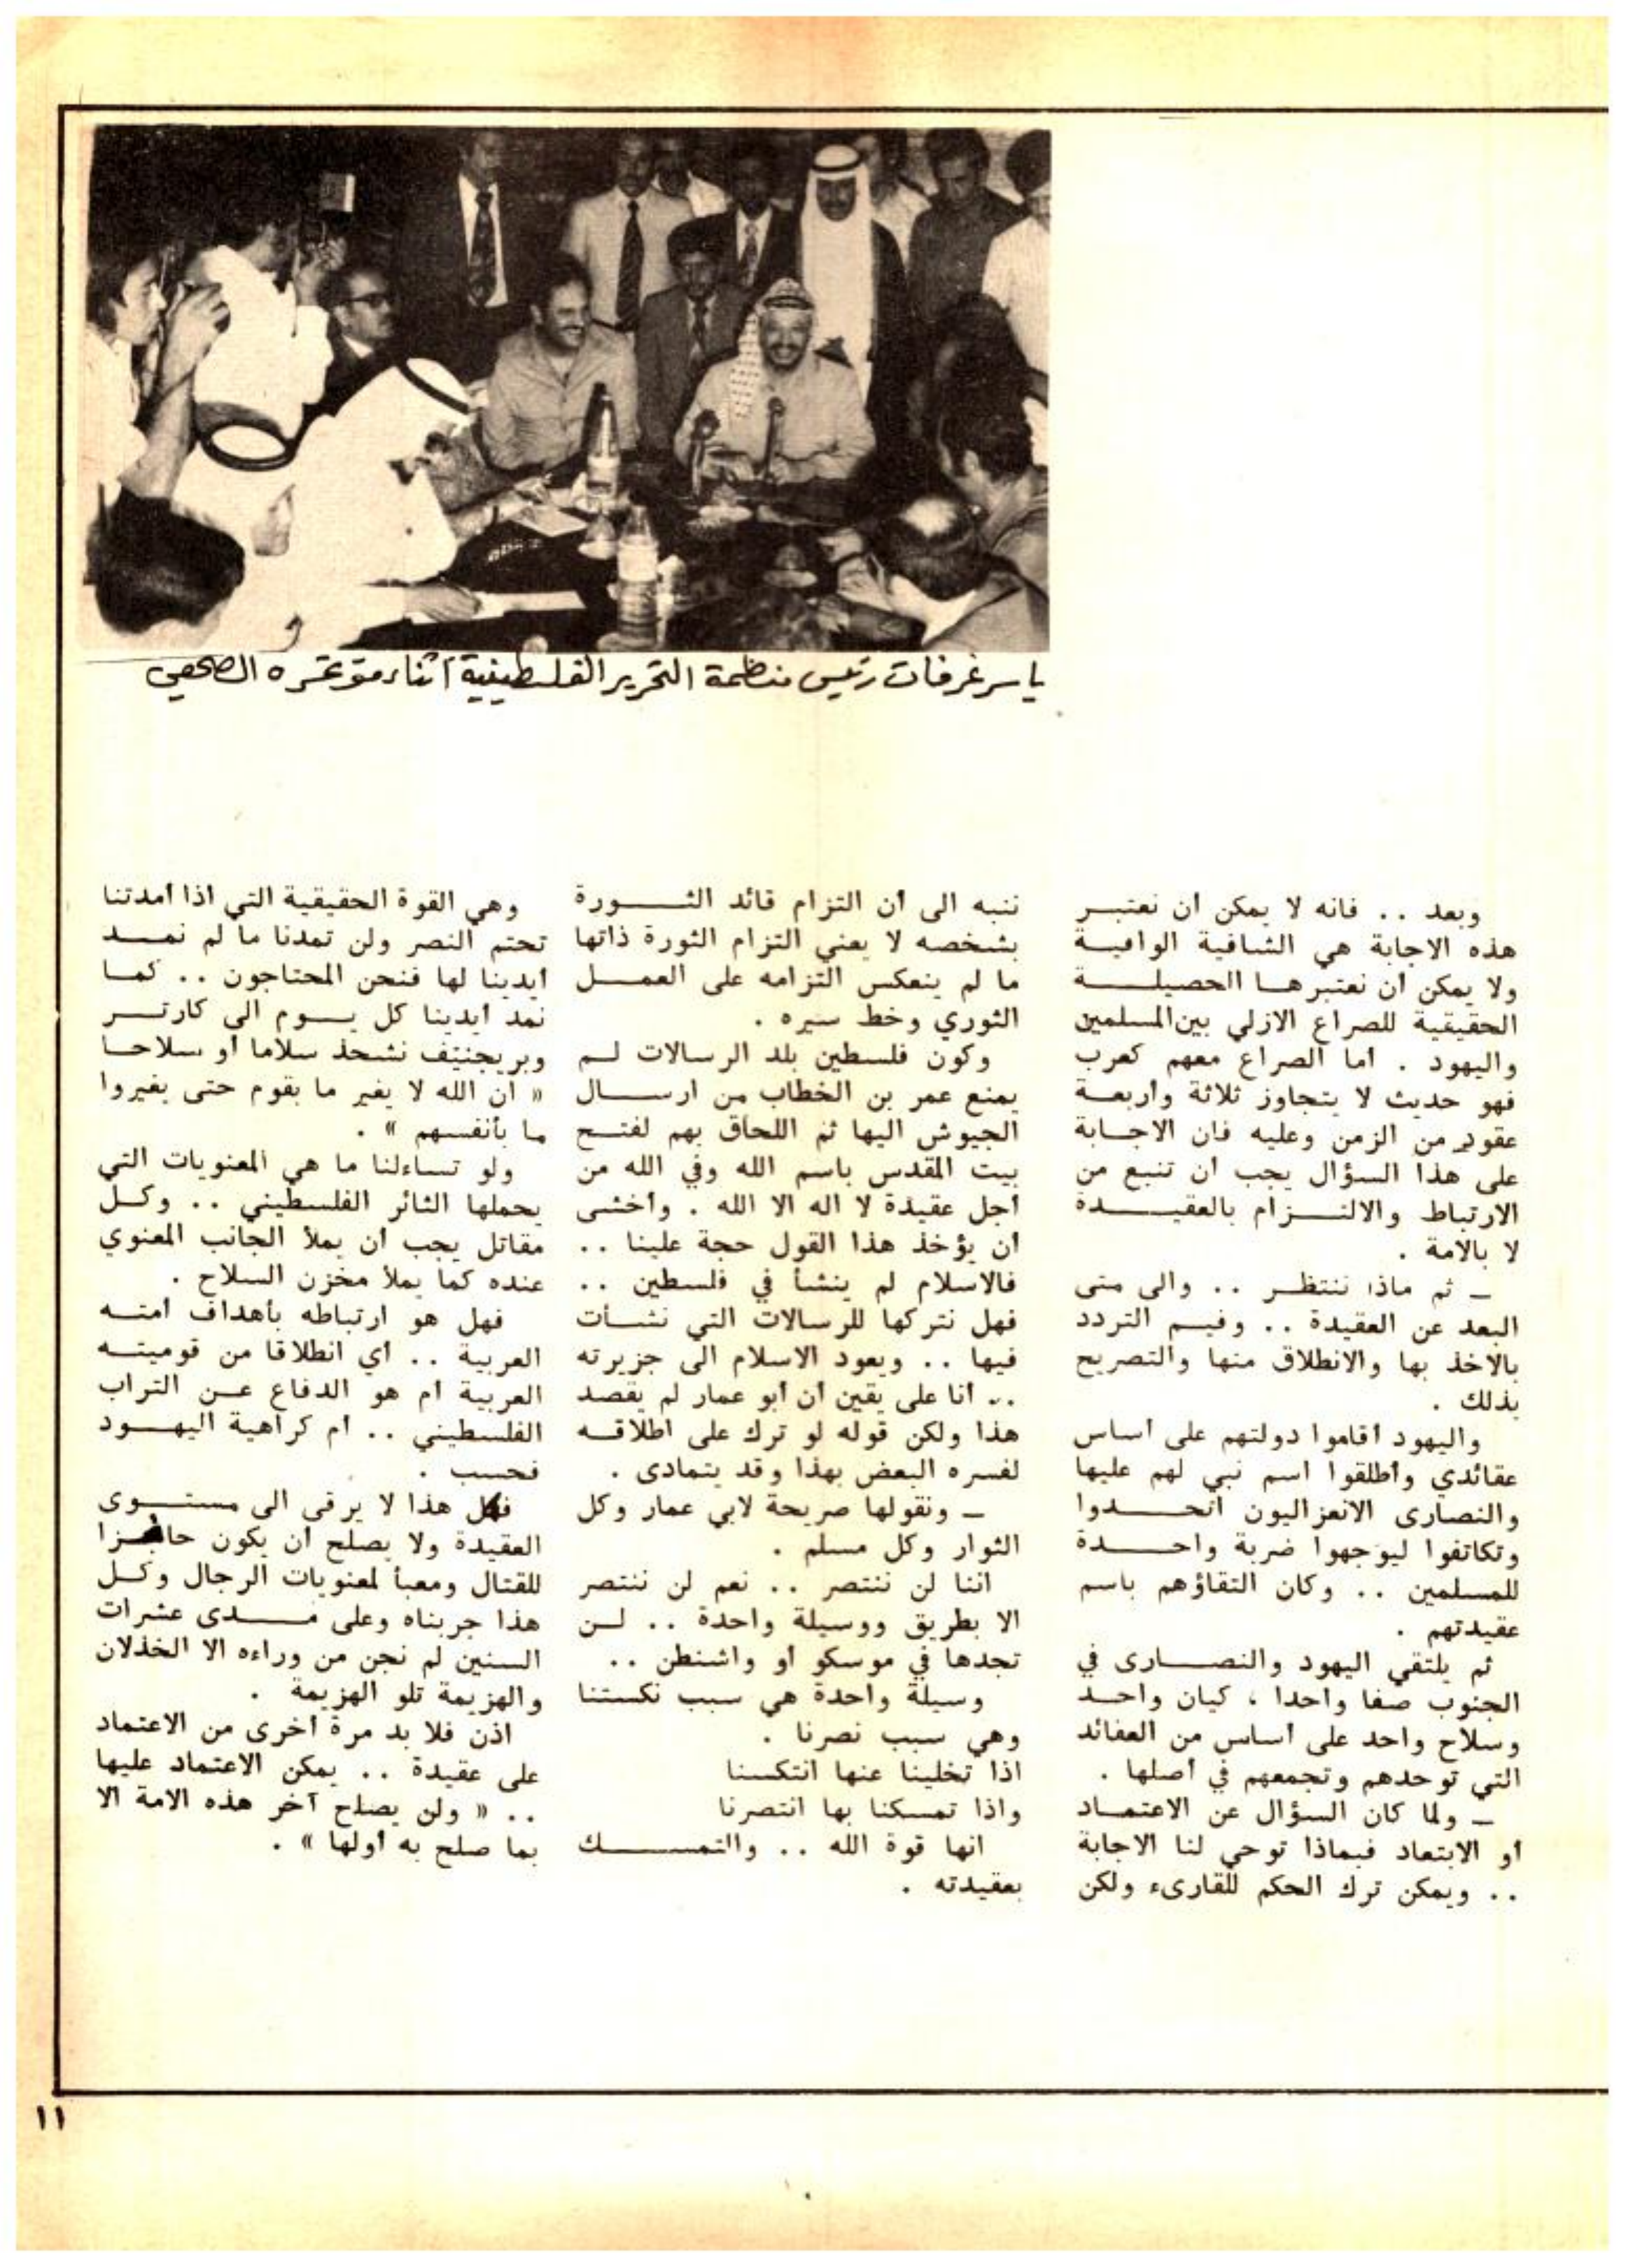 ياسر عرفات رئيس منظمة التحرير الفلسطينية أثناء مؤتمره الصحفي
وبعد .. فانه لا يمكن أن نعتبر
هذه الاجابة هي الشافية الوافية
ولا يمكن أن نعتبرها الحصيلة
الحقيقية للصراع الازلي بين المسلمين
واليهود . أما الصراع معهم كعرب
فهو حديث لا يتجاوز ثلاثة وأربعة
عقود من الزمن وعليه فان الاجابة
على هذا السؤال يجب أن تنبع من
الارتباط والالتزام بالعقيدة
لا بالامة .
ـ ثم ماذا ننتظر .. والى متى
البعد عن العقيدة .. وفيم التردد
بالاخذ بها والانطلاق منها والتصريح
بذلك .
واليهود أقاموا دولتهم على أساس
عقائدي وأطلقوا اسم نبي لهم عليها
والنصارى الانعزاليون اتحدوا
وتكاتفوا ليوجهوا ضربة واحدة
للمسلمين .. وكان التقاؤهم باسم
عقيدتهم .
ثم يلتقي اليهود والنصارى في
الجنوب صفا واحدا ، كيان واحد
وسلاح واحد على أساس من العقائد
التي توحدهم وتجمعهم في أصلها .
ـ ولما كان السؤال عن الاعتماد
أو الابتعاد فبماذا توحي لنا الاجابة
.. ويمكن ترك الحكم للقارىء ولكن
ننبه الى أن التزام قائد الثورة
بشخصه لا يعني التزام الثورة ذاتها
ما لم ينعكس التزامه على العمل
الثوري وخط سيره .
وكون فلسطين بلد الرسالات لم
يمنع عمر بن الخطاب من ارسال
الجيوش اليها ثم اللحاق بهم لفتح
بيت المقدس باسم الله وفي الله من
أجل عقيدة لا اله الا الله . وأخشى
أن يؤخذ هذا القول حجة علينا ..
فالاسلام لم ينشأ في فلسطين ..
فهل نتركها للرسالات التي نشأت
فيها .. ويعود الاسلام الى جزيرته
.. أنا على يقين أن أبو عمار لم يقصد
هذا ولكن قوله لو ترك على اطلاقه
لفسره البعض بهذا وقد يتمادى .
ـ ونقولها صريحة لابي عمار وكل
الثوار وكل مسلم .
اننا لن ننتصر .. نعم لن ننتصر
الا بطريق ووسيلة واحدة .. لن
تجدها في موسكو أو واشنطن ..
وسيلة واحدة هي سبب نكستنا
وهي سبب نصرنا .
اذا تخلينا عنها انتكسنا
واذا تمسكنا بها انتصرنا
انها قوة الله .. والتمسك
بعقيدته .
وهي القوة الحقيقية التي اذا أمدتنا
تحتم النصر ولن تمدنا ما لم نمد
أيدينا لها فنحن المحتاجون .. كما
نمد أيدينا كل يوم الى كارتر
وبريجنيف نشحذ سلاما أو سلاحا
« ان الله لا يغير ما بقوم حتى يغيروا
ما بأنفسهم » .
ولو تساءلنا ما هي المعنويات التي
يحملها الثائر الفلسطيني .. وكل
مقاتل يجب أن يملأ الجانب المعنوي
عنده كما يملأ مخزن السلاح .
فهل هو ارتباطه بأهداف أمته
العربية .. أي انطلاقا من قوميته
العربية أم هو الدفاع عن التراب
الفلسطيني .. أم كراهية اليهود
فحسب .
فكل هذا لا يرقى الى مستوى
العقيدة ولا يصلح أن يكون حافزا
للقتال ومعبأ لمعنويات الرجال وكل
هذا جربناه وعلى مدى عشرات
السنين لم نجن من وراءه الا الخذلان
والهزيمة تلو الهزيمة .
اذن فلا بد مرة أخرى من الاعتماد
على عقيدة .. يمكن الاعتماد عليها
.. « ولن يصلح آخر هذه الامة الا
بما صلح به أولها » .
١١